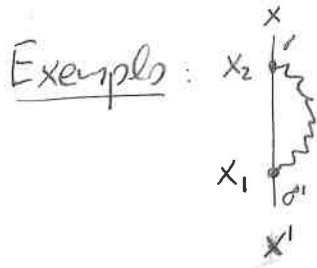 x
Exemplo : X2
X1
σ'
X'